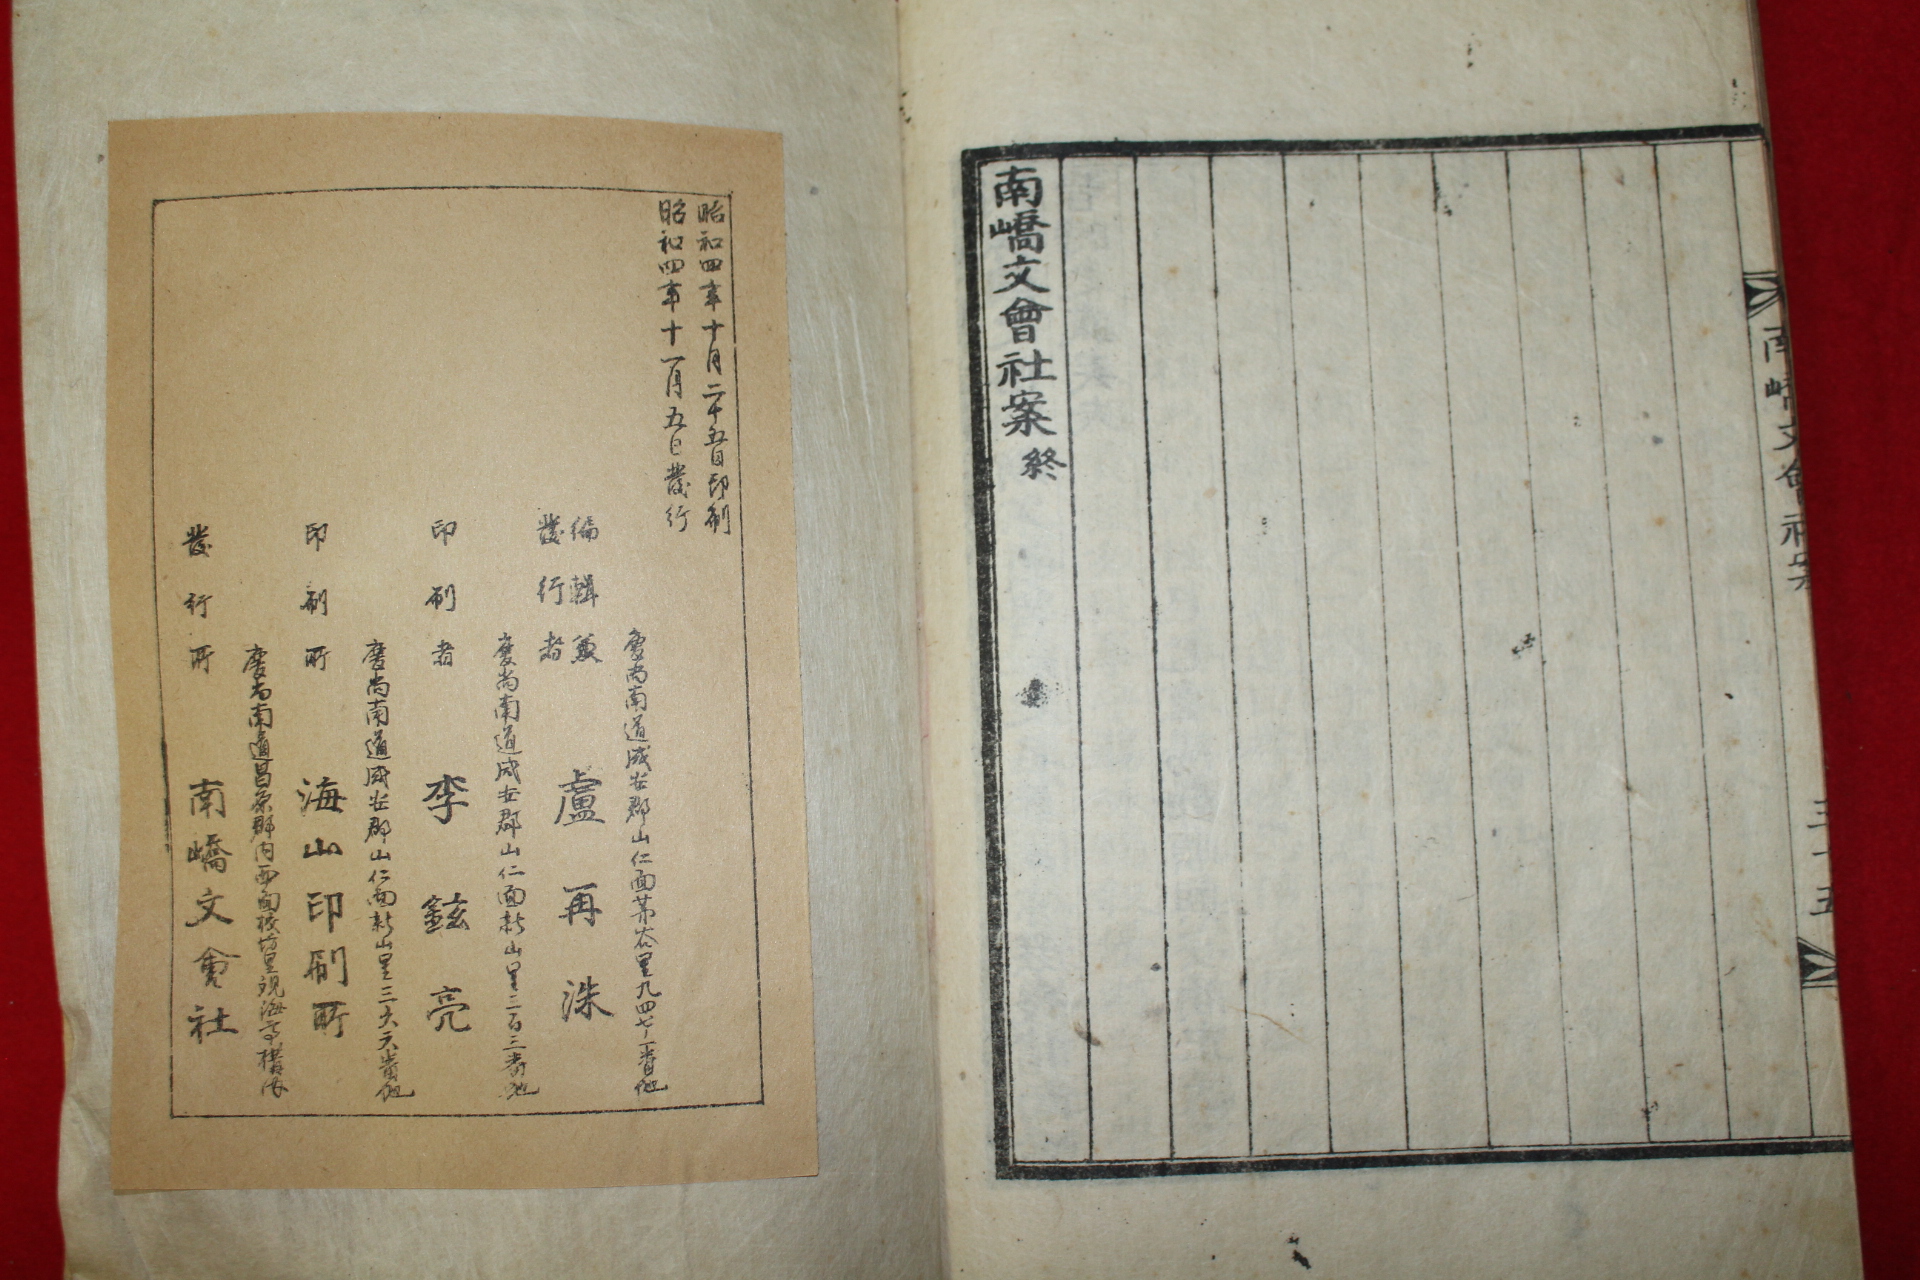 南嶠文會社案 終
南嶠文會社案
三十五
昭和四年十月二十五日印刷
昭和四年十一月五日發行
慶尚南道咸安郡山仁面茅谷里九四七ノ一番地
編輯兼
發行者 盧再洙
慶尚南道咸安郡山仁面新山里二百三番地
印刷者 李鉉亮
慶尚南道咸安郡山仁面新山里三六六番地
印刷所 海山印刷所
慶尚南道昌原郡內西面校坊里觀海亭構內
發行所 南嶠文會社